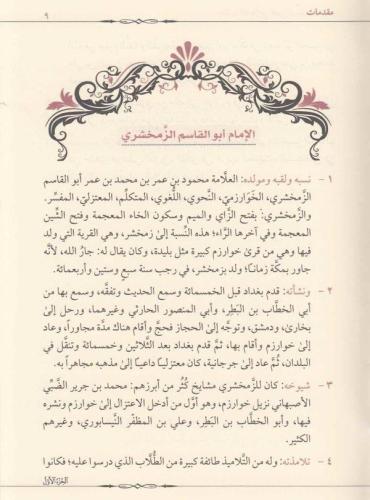 مقدمات
٩
الإمام أبو القاسم الزَّمخشري
١ - نسبه ولقبه ومولده: العلَّامة محمود بن عمر بن محمد بن عمر أبو القاسم
الزَّمخشري، الخَوارزميّ، النَّحوي، اللُّغوي، المتكلِّم، المعتزليّ، المفسِّر.
والزَّمخشري: بفتح الزَّاي والميم وسكون الخاء المعجمة وفتح الشِّين
المعجمة وفي آخرها الرَّاء؛ هذه النِّسبة إلىٰ زمخشر، وهي القرية التي ولد
فيها وهي من قرىٰ خوارزم كبيرة مثل بليدة، وكان يقال له: جار الله، لأنَّه
جاور بمكَّة زمانــًا؛ ولد بزمخشر، في رجب سنة سبعٍ وستين وأربعمائة.
٢ - ونشأته: قدم بغداد قبل الخمسمائة وسمع الحديث وتفقَّه، وسمع بها من
أبي الخطَّاب بن البَطِر، وأبي المنصور الحارثي وغيرهما، ورحل إلىٰ
بخارىٰ، ودمشق، وتوجَّه إلىٰ الحجاز فحجَّ وأقام هناك مدَّة مجاوراً، وعاد
إلىٰ خوارزم وأقام بها، ثمَّ قدم بغداد بعد الثَّلاثين وخمسمائة وتنقَّل في
البلدان، ثمَّ عاد إلىٰ جرجانية، كان معتزليــًا داعيــًا إلىٰ مذهبه مجاهراً به.
٣ - شيوخه: كان للزَّمخشري مشايخ كُثُر من أبرزهم: محمد بن جرير الضَّبِّي
الأصبهاني نزيل خوارزم، وهو أوَّل من أدخل الاعتزال إلىٰ خوارزم ونشره
فيها، وأبو الخطَّاب بن البَطِر، وعلي بن المظفّر النَّيسابوري، وغيرهم
الكثير.
٤ - تلامذته: وله من التَّلاميذ طائفة كبيرة من الطُّلاب الذي درسوا عليه؛ فكانوا
الجزء الأول